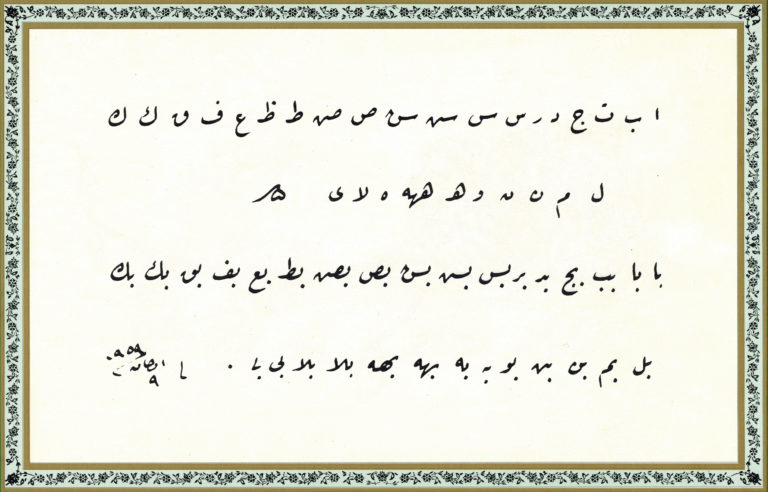 ا ب ت ج د ر س س س س ص ص ط ظ ع ف ق ك ك
ل م ن ن و ه هه ه لا ى
با با بب بج بد بر بس بس بس بص بص بط بع بف بق بك بك
بل بم بن بن بو به به بهه بهه بلا بلا بى بے